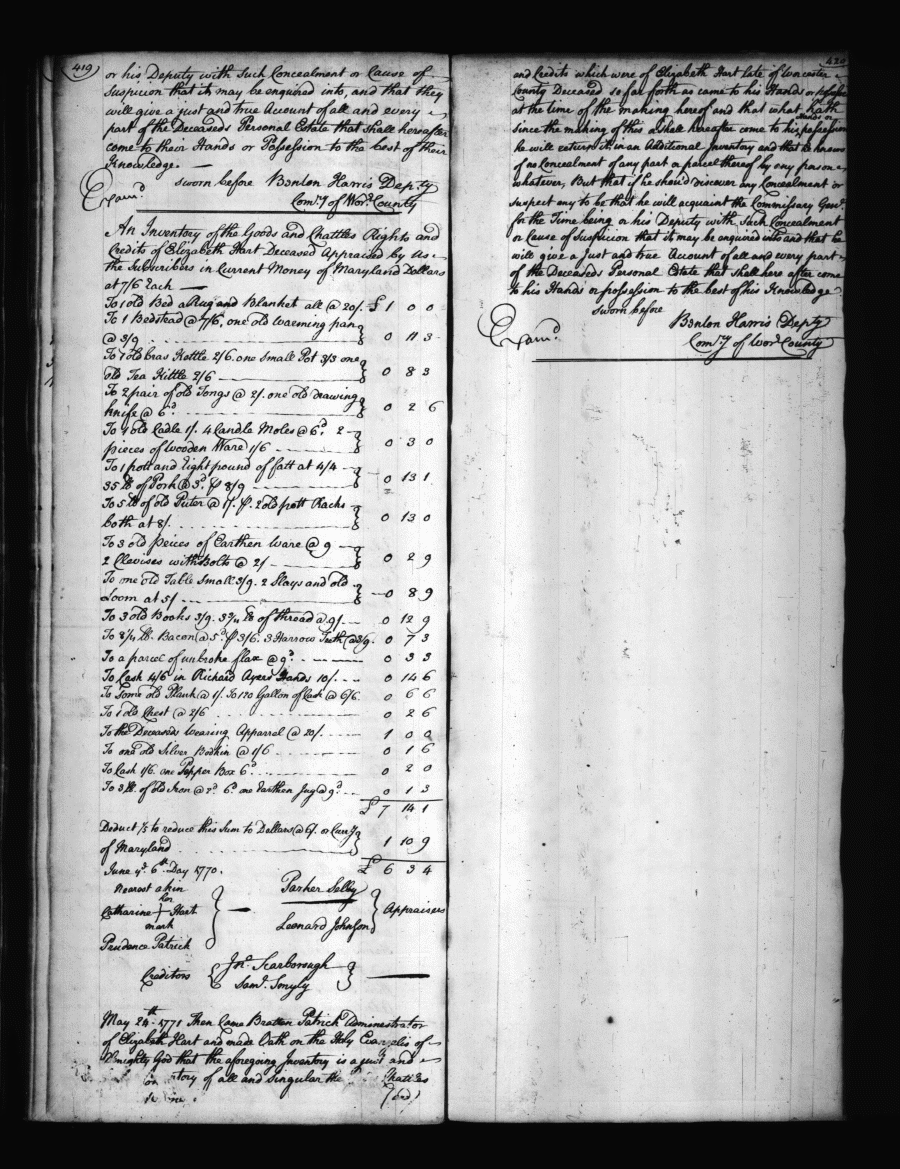 419
or his Deputy with Such Concealment or Cause of
Suspicion that it may be enquired into, and that they
will give a just and true Account of all and every
part of the Deceaseds Personal Estate that shall hereafter
come to their Hands or Possession to the best of their
Knowledge.
Exam.d sworn before Benton Harris Dep.ty
Com.y of Wor.r County
An Inventory of the Goods and Chattles Rights and
Credits of Elizabeth Hart Deceased Appraised by us
the Subscribers in Current Money of Maryland Dollars
at 7/6 Each
To 1 old Bed a Rug and Blanket all @ 20/. £ 1 0 0
To 1 Bedstead @ 7/6, one old Warming pan
@ 3/9 0 11 3
To 1 old bras Kettle 2/6. one Small Pot 3/3 one
old Tea Kittle 2/6 0 8 3
To 2 pair of old Tongs @ 2/. one old drawing
knife @ 6d. 0 2 6
To 1 old Ladle 1/. 4 Candle Moles @ 6d. 2
pieces of Wooden Ware 1/6 0 3 0
To 1 pott and Eight pound of fatt at 4/4
35 lb of Pork @ 3d. p 8/9 0 13 1
To 5 lb of old Puter @ 1/. p. 2 old pott Racks
both at 8/. 0 13 0
To 3 old peices of Earthen Ware @ 9
2 Clevises with Bolts @ 2/ 0 2 9
To one old Table Small 3/9. 2 Slays and old
Loom at 5/ 0 8 9
To 3 old Books 3/9. 3 3/4 lb of thread @ 9/. 0 12 9
To 8 1/4 lb. Bacon @ 5d. p 3/6. 3 Harrow Teeth @ 3/9. 0 7 3
To a parcel of unbroke flax @ 9d. 0 3 3
To Cash 4/6 in Richard Ayers Hands 10/. 0 14 6
To Some old Plank @ 1/. To 120 Gallon of Cask @ 5/6. 0 6 6
To 1 old Chest @ 2/6 0 2 6
To the Deceaseds Wearing Apparrel @ 20/. 1 0 0
To one old Silver Bodkin @ 1/6 0 1 6
To Cash 1/6. one Pepper Box 6d. 0 2 0
To 3 lb. of old Iron @ 2d. 6d. one Earthen Jug @ 9d. 0 1 3
£ 7 14 1
Deduct 1/5 to reduce this Sum to Dollars @ 6/. or Curr.y
of Maryland 1 10 9
June ye. 6th. Day 1770. £ 6 3 4
Nearest a kin Parker Selby
her
Catharine + Hart Appraisers
mark Leonard Johnson
Prudence Patrick
Creditors Jno. Scarborough
Sam.l Smyly
May 24th. 1771 Then Came Bratten Patrick Administrator
of Elizabeth Hart and made Oath on the Holy Evangelis of
Almighty God that the aforegoing Inventory is a just and
tory of all and singular the Chattles
(and)
420
and Credits which were of Elizabeth Hart late of Worcester
County Deceased so far forth as came to his Hands or possession
at the time of the making hereof and that what hath
Hands or
since the making of this or Shall hereafter come to his possession
he will return it in an Additional Inventory and that he knows
of no Concealment of any part or parcel thereof by any person
whatever, But that if he shou'd discover any Concealment or
suspect any to be that he will acquaint the Commissary Gen.l
for the Time being or his Deputy with Such Concealment
or Cause of Suspicion that it may be enquired into and that he
will give a just and true Account of all and every part
of the Deceaseds Personal Estate that shall here after come
to his Hands or possession to the best of his Knowledge
sworn before
Exam.d Benton Harris Depty
Com.y of Wor.r County